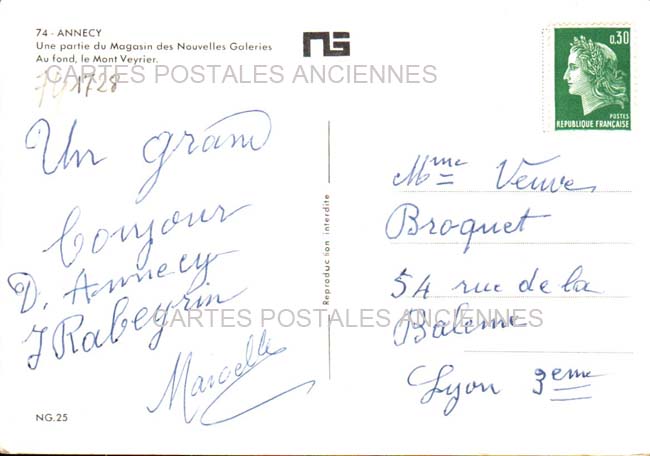 74 - ANNECY
Une partie du Magasin des Nouvelles Galeries
Au fond, le Mont Veyrier.
NG
CARTES POSTALES ANCIENNES
1728
Un grand
bonjour
D. Annecy
J Rabeyrin
Marcelle
NG.25
Reproduction interdite
0,30
POSTES
REPUBLIQUE FRANÇAISE
Mme Veuve
Broquet
54 rue de la
Baleine
CARTES POSTALES ANCIENNES
Lyon 3eme